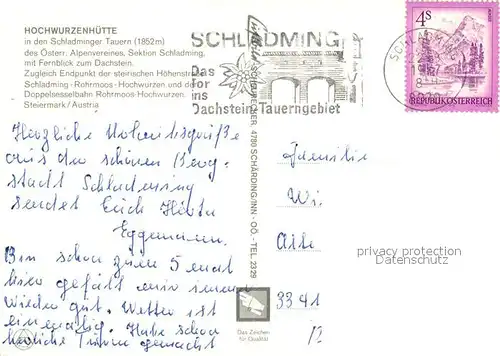 HOCHWURZENHÜTTE
in den Schladminger Tauern (1852m)
des Österr. Alpenvereines, Sektion Schladming,
mit Fernblick zum Dachstein.
Zugleich Endpunkt der steirischen Höhenstraße
Schladming - Rohrmoos - Hochwurzen und der
Doppelsesselbahn Rohrmoos-Hochwurzen.
Steiermark/Austria
SCHLADMING
Das
Tor
ins
Dachstein-Tauerngebiet
4S
REPUBLIK ÖSTERREICH
4780 SCHÄRDING/INN - OÖ. - TEL. 2329
Herzliche Urlaubsgrüße
aus der schönen Berg-
stadt Schladming
sendet Euch Herta
Eggemann.
Bin schon zum 5 mal
hier gefällt mir immer
wieder gut. Wetter ist
einmalig. Habe schon
herrliche Touren gemacht
Familie
Wi
Alte
3341
privacy protection
Datenschutz
Das Zeichen
für Qualität